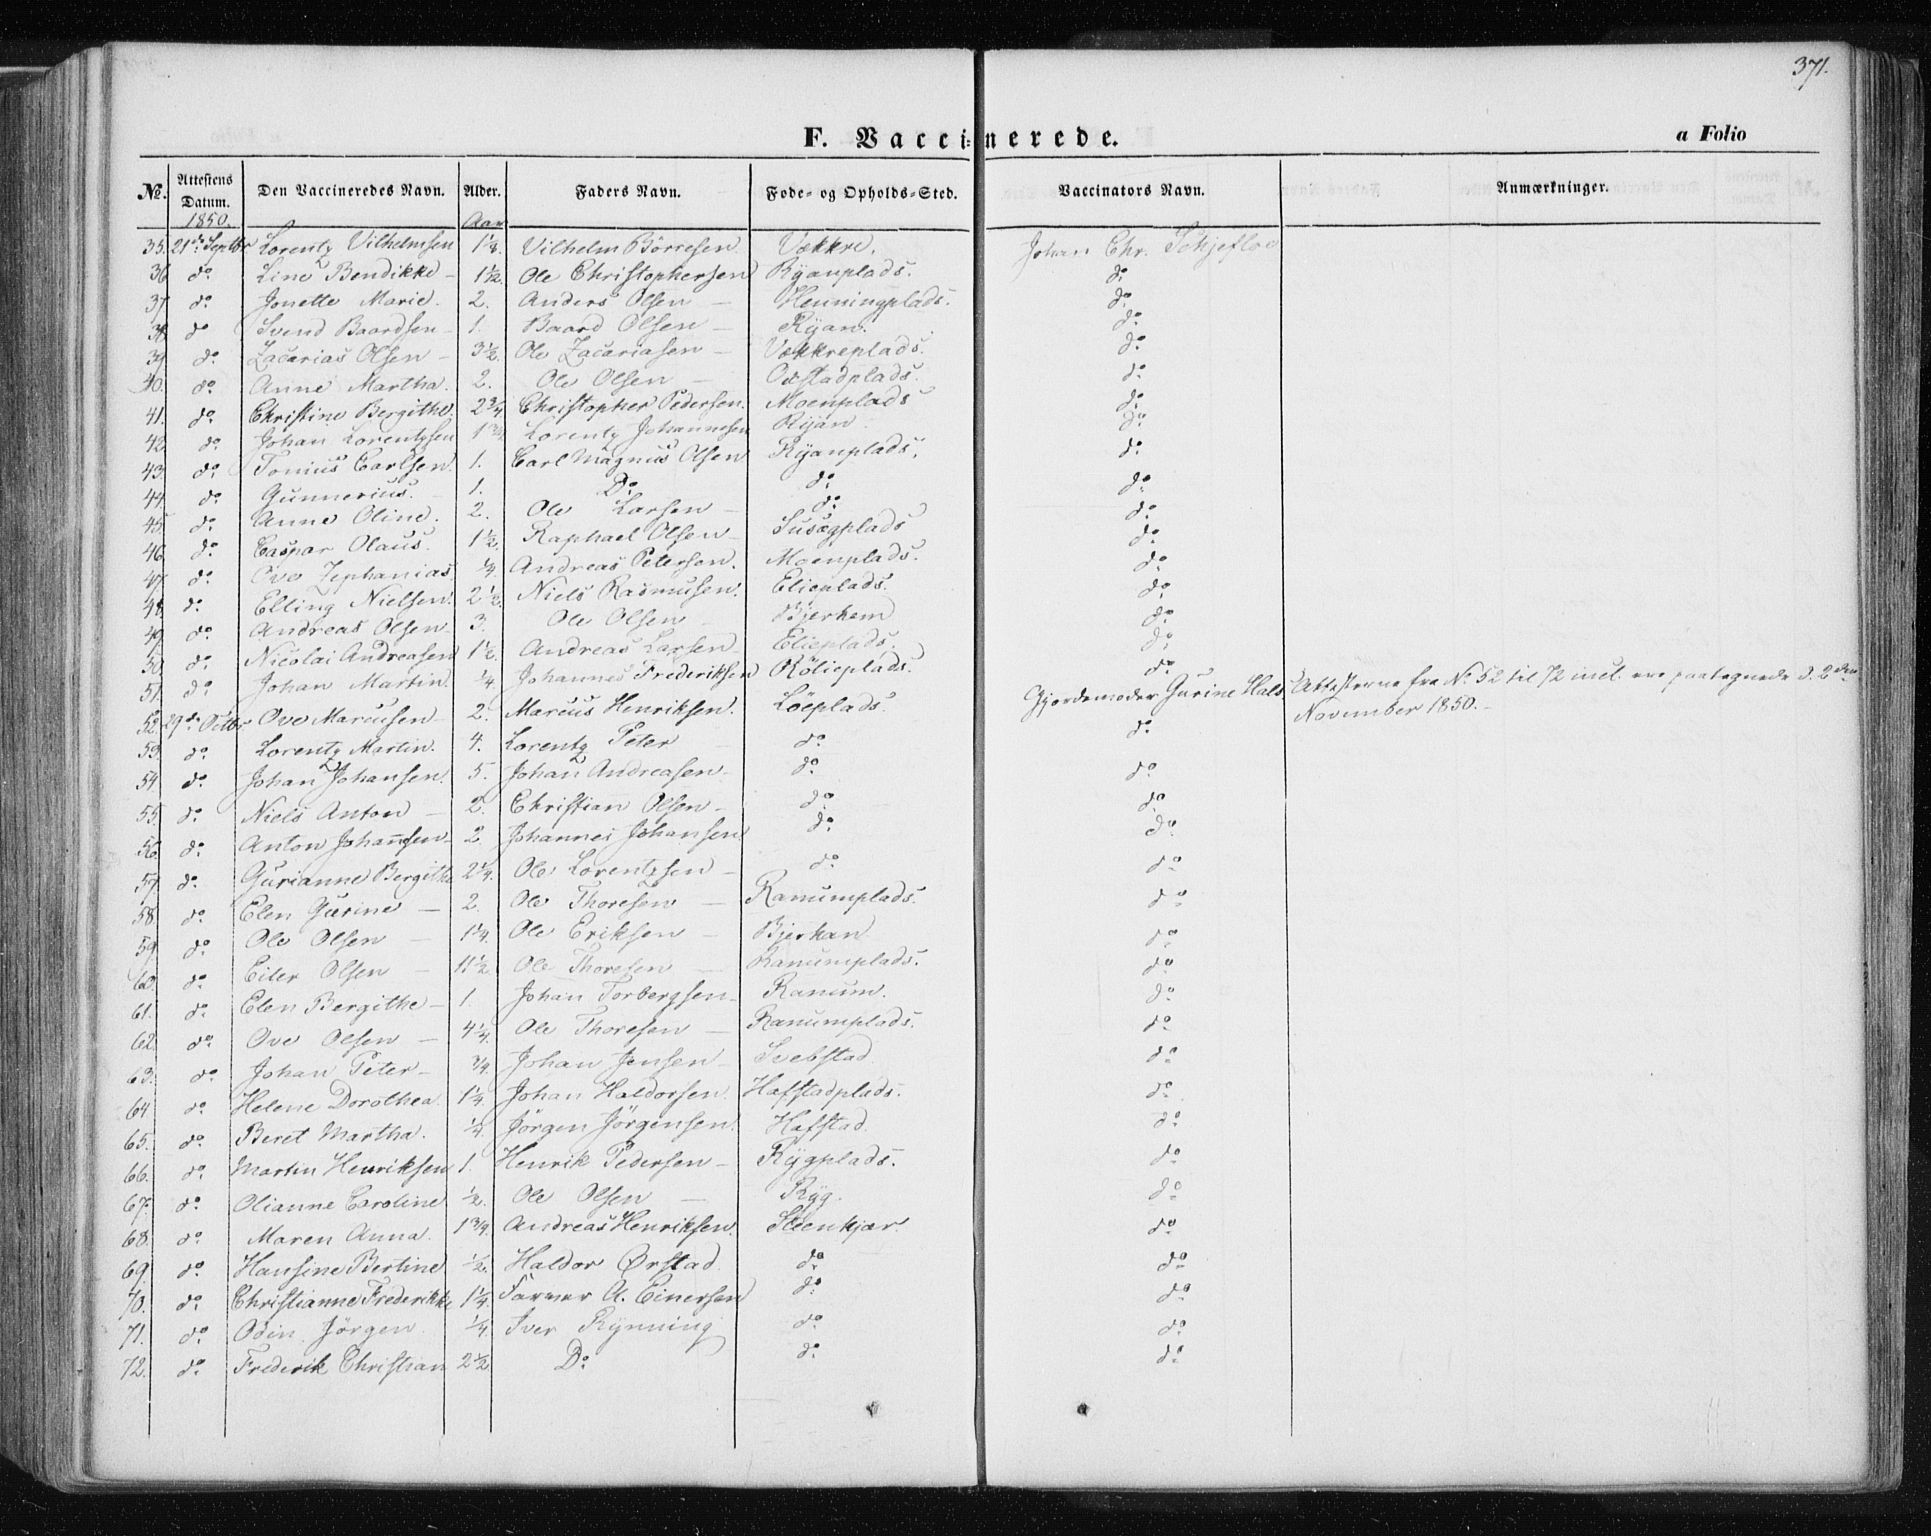 371.
F. Vaccinerede.
a Folio
No. Attestens Datum. Den Vaccineredes Navn. Alder. Faders Navn. Føde- og Opholds-Sted. Vaccinators Navn. Anmærkninger.
1850. Aar
35. 21de Septbr Lorentz Vilhelmsen 1¼. Vilhelm Börresen Vækkre. Johan Chr. Schjefloe
36 do Line Bendikke – 1½. Ole Christophersen Ryanplads. do
37 do Jonette Marie. 2. Anders Olsen – Henningplads. do
38 do Svend Baardsen – 1. Baard Olsen – Ryan. do
39 do Zacarias Olsen – 3½. Ole Zacariasen – Vækkreplads. do
40. do Anne Martha. 2. Ole Olsen – Oxstadplads. do
41. do Christine Bergithe. 2¾. Christopher Pedersen. Moenplads do
42. do Johan Lorentzsen 1¾. Lorentz Johannesen Ryan. do
43. do Tonius Carlsen. 1. Carl Magnus Olsen Ryanplads. do
44. do Gunnerius. 1. Do do do
45 do Anne Oline. 2. Ole Larsen – do do
46. do Caspar Olaus. 1½. Raphael Olsen – Susegplads do
47. do Ove Zephanias ¼. Andreas Petersen. Moenplads. do
48. do Elling Nielsen. 2½. Niels Rasmusen. Elieplads. do
49. do Andreas Olsen – 3. Ole Olsen – Bjerkem do
50. do Nicolai Andreasen 1½. Andreas Larsen – Elieplads. do
51. do Johan Martin. ¼. Johannes Frederiksen Rölieplads. do
52. 29de Octbr Ove Marcusen – 2. Marcus Henriksen. Löeplads. Gjordemoder Gurine Hals Attesterne fra No. 52 til 72 incl. ere paategnede d. 2den
November 1850. –
53. do Lorentz Martin. 4. Lorentz Peter – do do
54. do Johan Johansen. 5. Johan Andreasen – do do
55. do Niels Anton – 2. Christian Olsen – do do
56. do Anton Johansen – 2 Johannes Johansen do do
57. do Gurianne Bergithe 2¼. Ole Lorentzsen – do do
58. do Elen Gurine – 2. Ole Thoresen – Ranumplads. do
59. do Ole Olsen – 1¼. Ole Eriksen – Bjerkan do
60. do Eiler Olsen – 11½. Ole Thoresen – Ranumplads. do
61. do Elen Bergithe – 1. Johan Torbergsen – Ranum. do
62. do Ove Olsen – 4¼. Ole Thoresen – Ranumplads. do
63. do Johan Peter – ¾. Johan Jensen – Svebstad do
64 do Helene Dorothea. 1¼. Johan Haldorsen. Hafstadplads. do
65. do Beret Martha. ¼. Jörgen Jörgensen. Hafstad. do
66. do Martin Henriksen 1. Henrik Pedersen – Rygplads. do
67. do Olianne Caroline ½. Ole Olsen – Ryg. do
68. do Maren Anna. 1¾. Andreas Henriksen. Steenkjær do
69. do Hansine Bertine ½. Haldor Ørstad. do do
70. do Christianne Frederikke 1¼. Farver A. Einersen do do
71. do Odin Jörgen ¼. Iver Rynning do do
72. do Frederik Christian 2½. Do do do